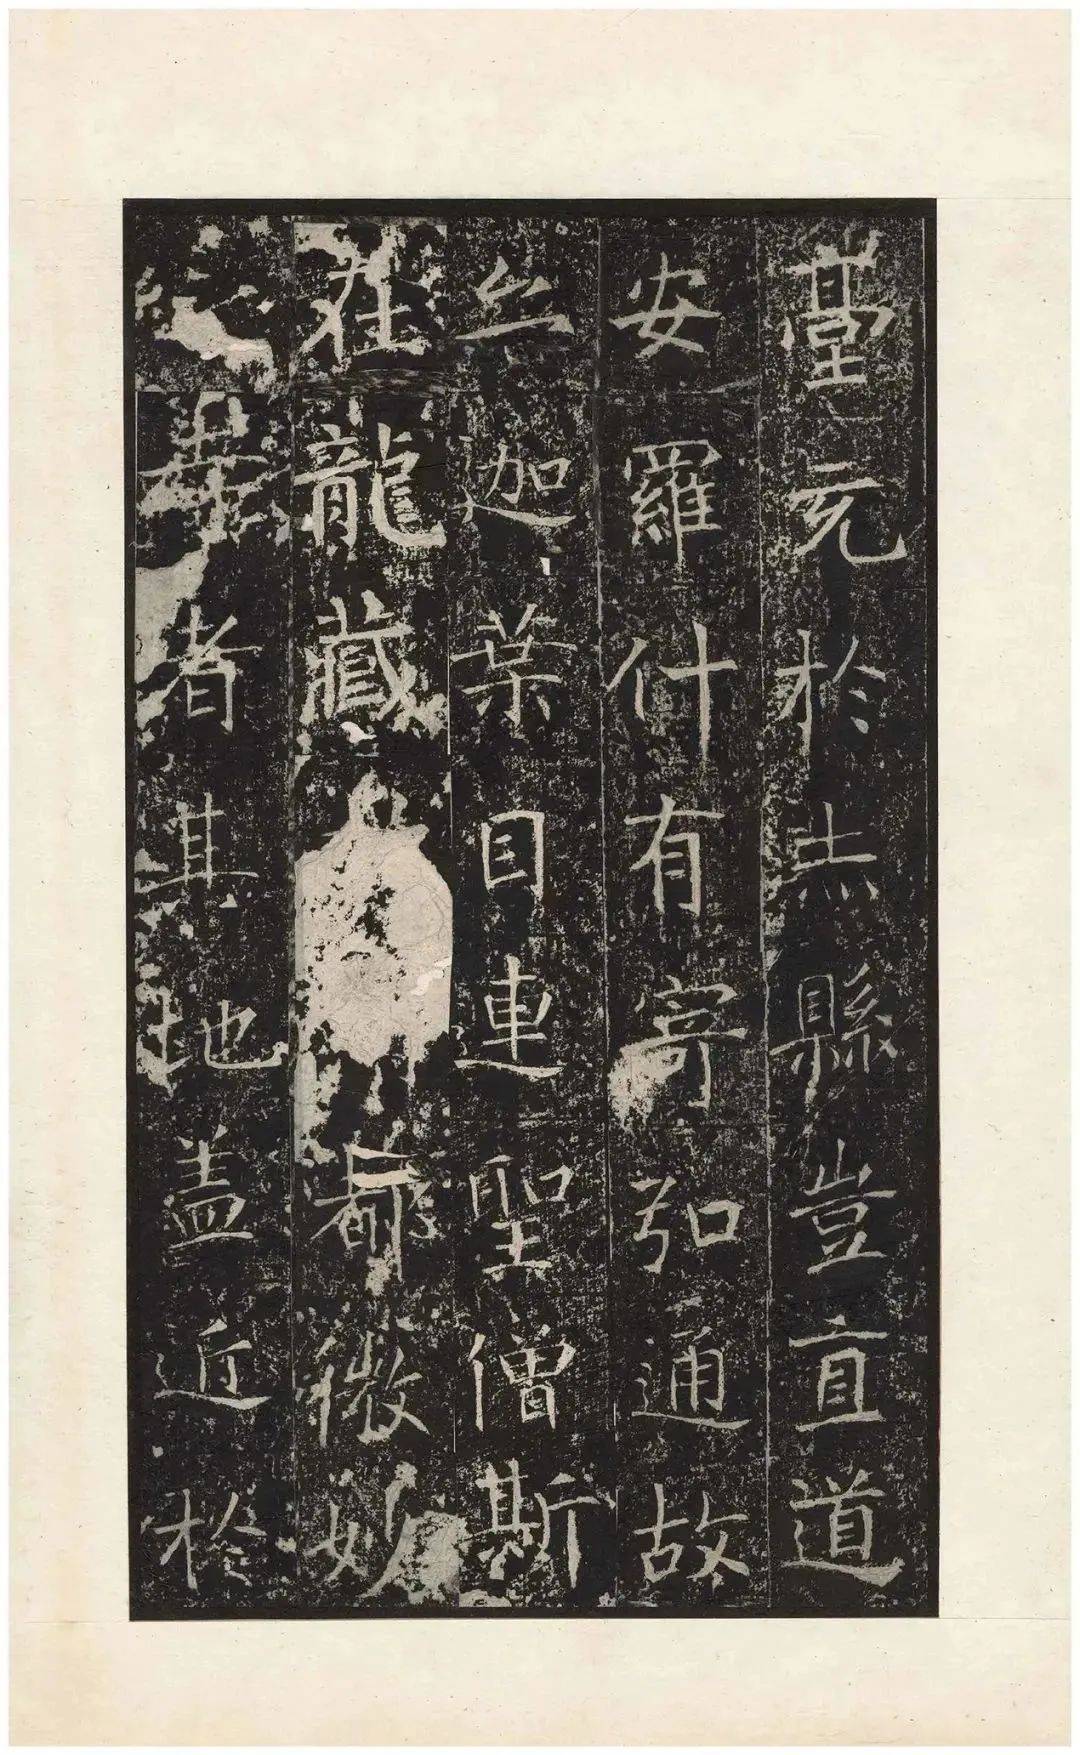 臺充於赤縣豈直道
安羅什有寄弘通故
迦葉目連聖僧斯
在龍藏都微妙
者其地蓋近於